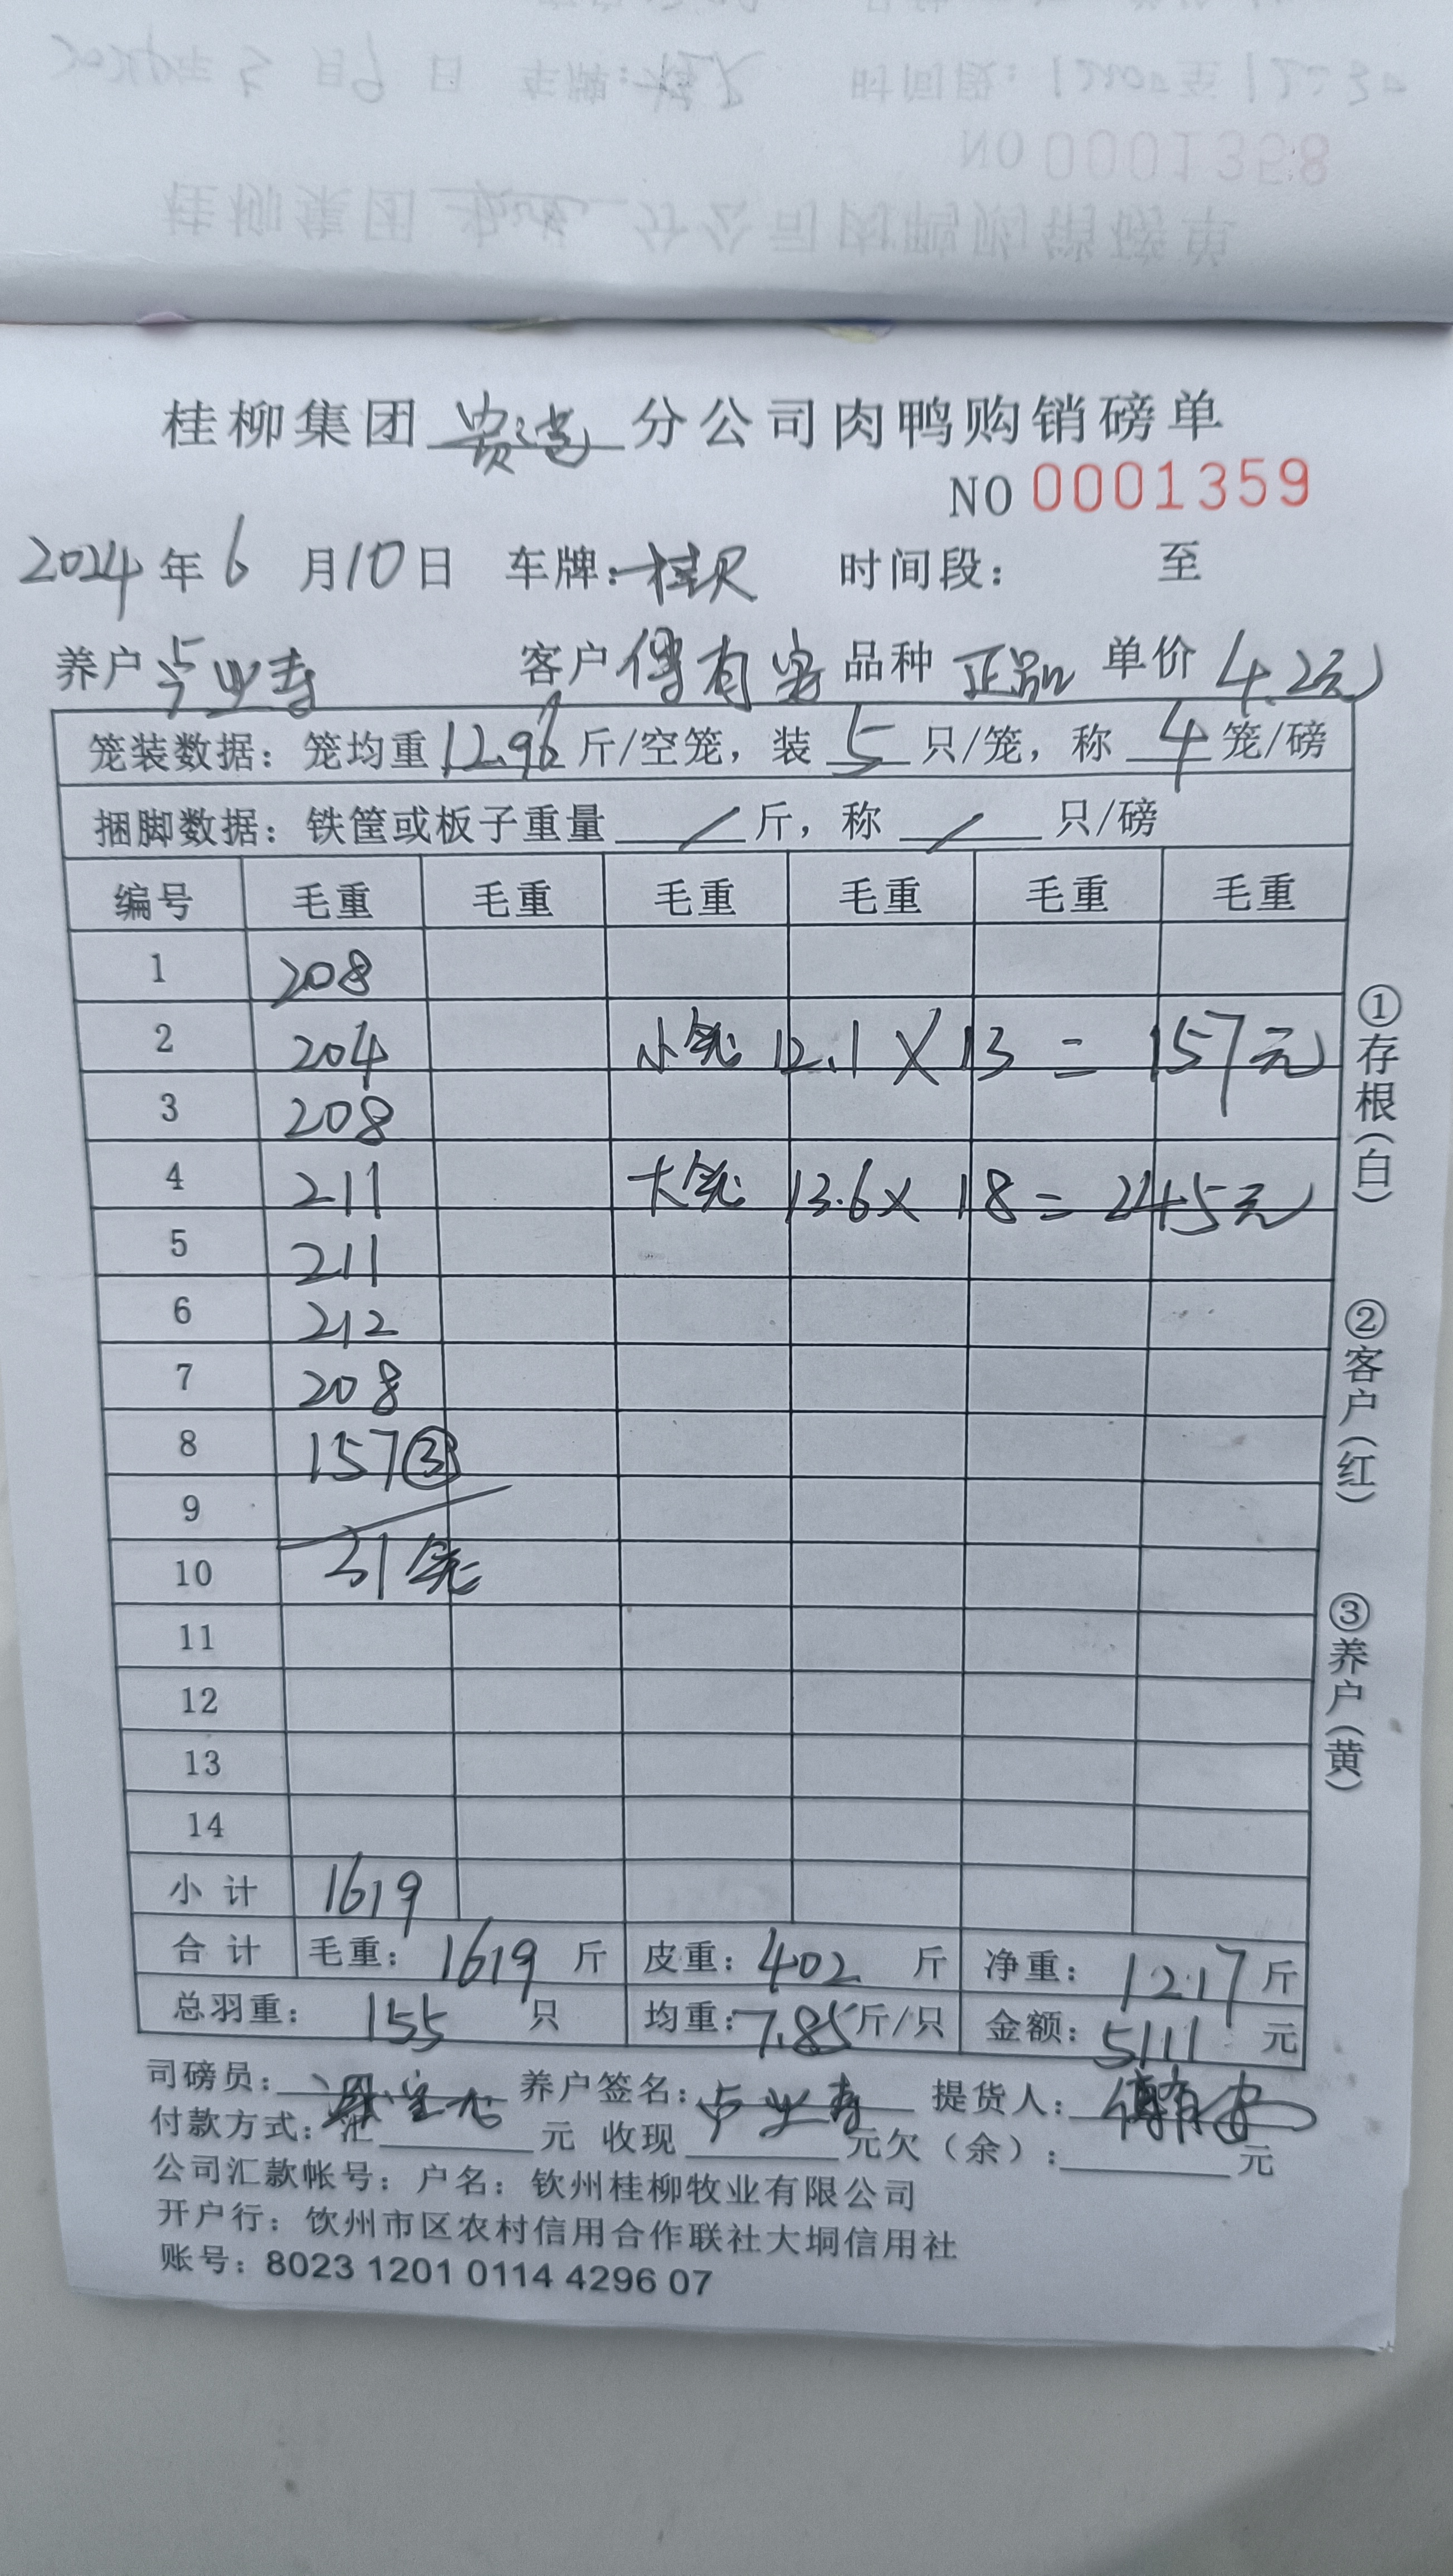 桂柳集团 贵港 分公司肉鸭购销磅单
NO 0001359
2024年 6 月 10 日 车牌: 桂R 时间段: 至
养户 卢业寿 客户 傅有安 品种 正品 单价 4.2元
笼装数据: 笼均重 12.96 斤/空笼, 装 5 只/笼, 称 4 笼/磅
捆脚数据: 铁筐或板子重量 / 斤, 称 / 只/磅
编号 毛重 毛重 毛重 毛重 毛重 毛重
1 208
2 204 小笼 12.1 X 13 = 157元
3 208
4 211 大笼 13.6 x 18 = 245元
5 211
6 212
7 208
8 157③
9
10 31笼
11
12
13
14
小计 1619
合计 毛重: 1619 斤 皮重: 402 斤 净重: 1217 斤
总羽重: 155 只 均重: 7.85 斤/只 金额: 5111 元
司磅员: 养户签名: 卢业寿 提货人: 傅有安
付款方式: 汇 元 收现 元欠(余): 元
公司汇款帐号: 户名: 钦州桂柳牧业有限公司
开户行: 钦州市区农村信用合作联社大垌信用社
账号: 8023 1201 0114 4296 07
①存根(白)
②客户(红)
③养户(黄)